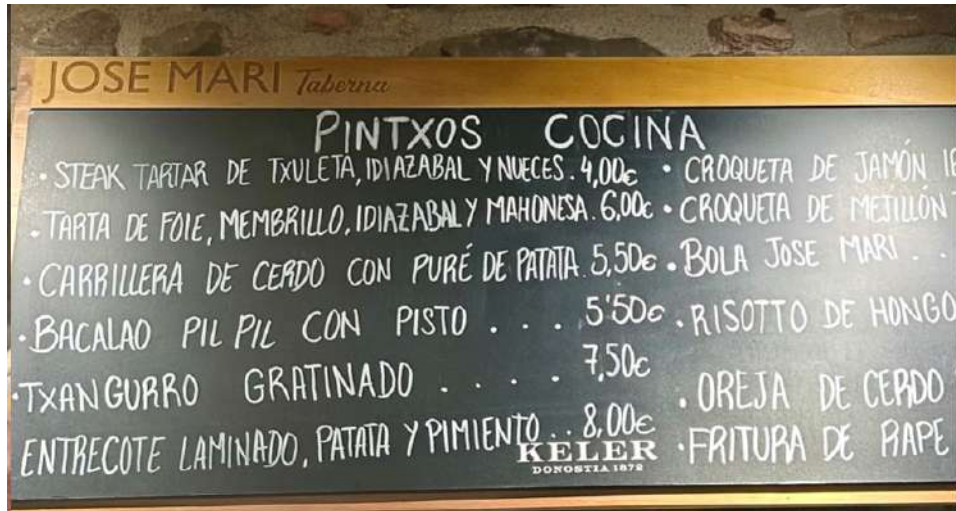 JOSE MARI Taberna
PINTXOS COCINA
· STEAK TARTAR DE TXULETA, IDIAZABAL Y NUECES . 4,00€
· TARTA DE FOIE, MEMBRILLO, IDIAZABAL Y MAHONESA . 6,00€
· CARRILLERA DE CERDO CON PURÉ DE PATATA . 5,50€
· BACALAO PIL PIL CON PISTO . . . 5'50€
· TXANGURRO GRATINADO . . . . . 7,50€
ENTRECOTE LAMINADO, PATATA Y PIMIENTO . . 8,00€
· CROQUETA DE JAMÓN
· CROQUETA DE MEJILLÓN
· BOLA JOSE MARI . .
· RISOTTO DE HONGO
· OREJA DE CERDO
· FRITURA DE RAPE
KELER
DONOSTIA 1872